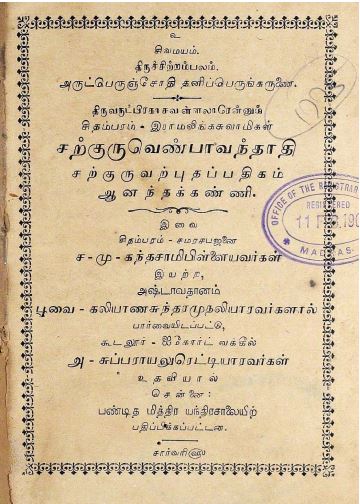 உ
சிவமயம்.
திருச்சிற்றம்பலம்.
அருட்பெருஞ்சோதி தனிப்பெருங்கருணை.
திருவருட்பிரகாசவள்ளலாரென்னும்
சிதம்பரம் - இராமலிங்கசுவாமிகள்
சற்குருவெண்பாவந்தாதி
சற்குருவற்புதப்பதிகம்
ஆனந்தக்கண்ணி.
இவை
சிதம்பரம் - சமரசபஜனை
ச - மு - கந்தசாமிபிள்ளையவர்கள்
இயற்றி,
அஷ்டாவதானம்
பூவை - கலியாணசுந்தரமுதலியாரவர்களால்
பார்வையிடப்பட்டு,
கூடலூர் - ஐகோர்ட் வக்கீல்
அ - சுப்பராயலுரெட்டியாரவர்கள்
உதவியால்
சென்னை:
பண்டித மித்திர யந்திரசாலையிற்
பதிப்பிக்கப்பட்டன.
சார்வரி௵
OFFICE OF THE REGISTRAR
REGISTERED
11 FEB 190
MADRAS